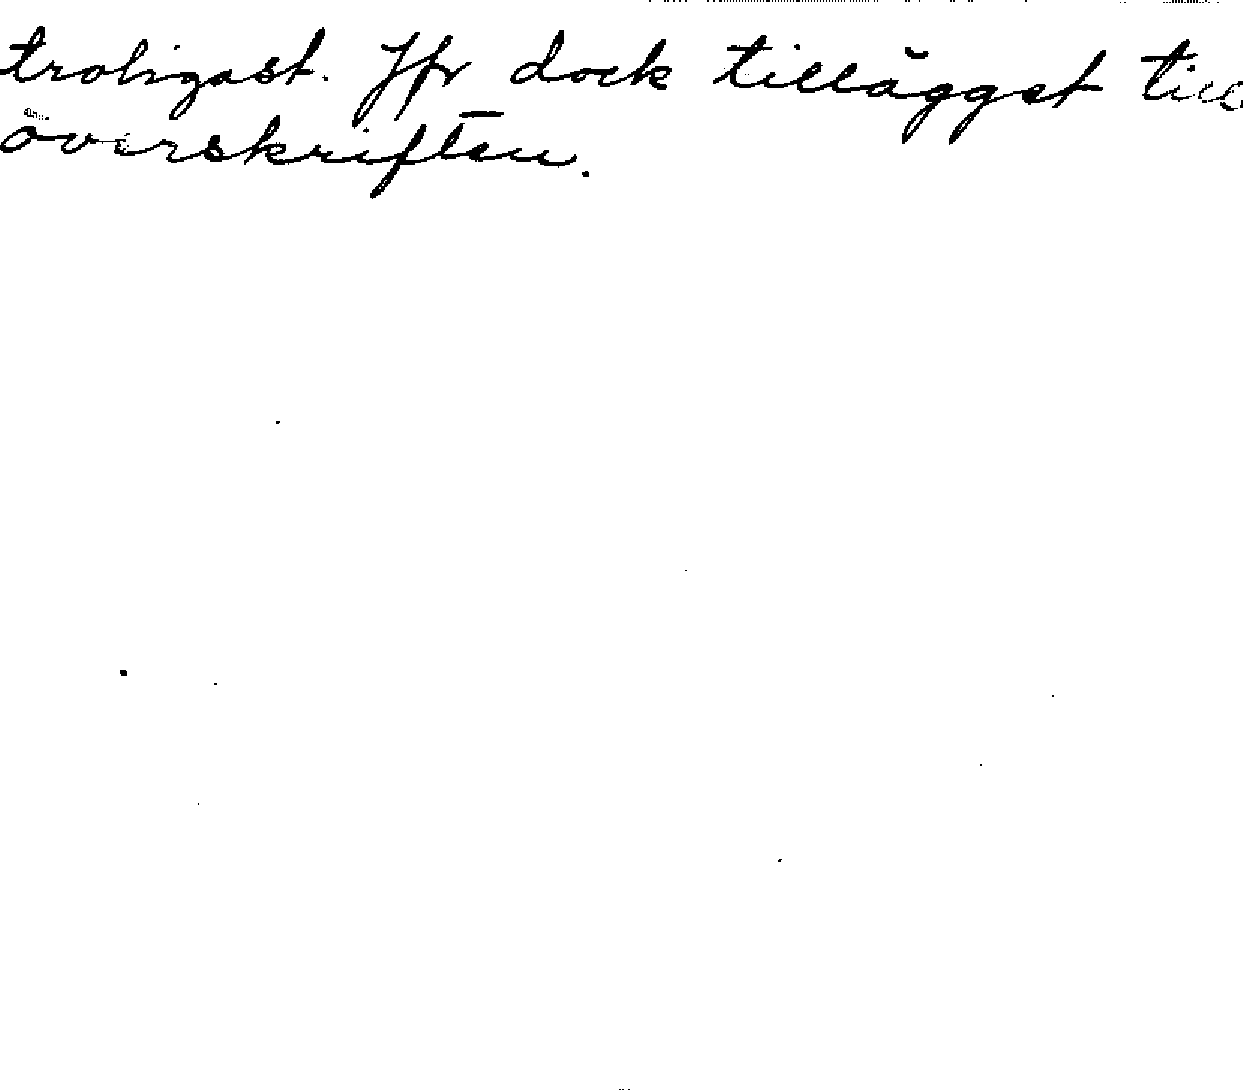 troligast. Jfr dock tillägget till
överskriften.